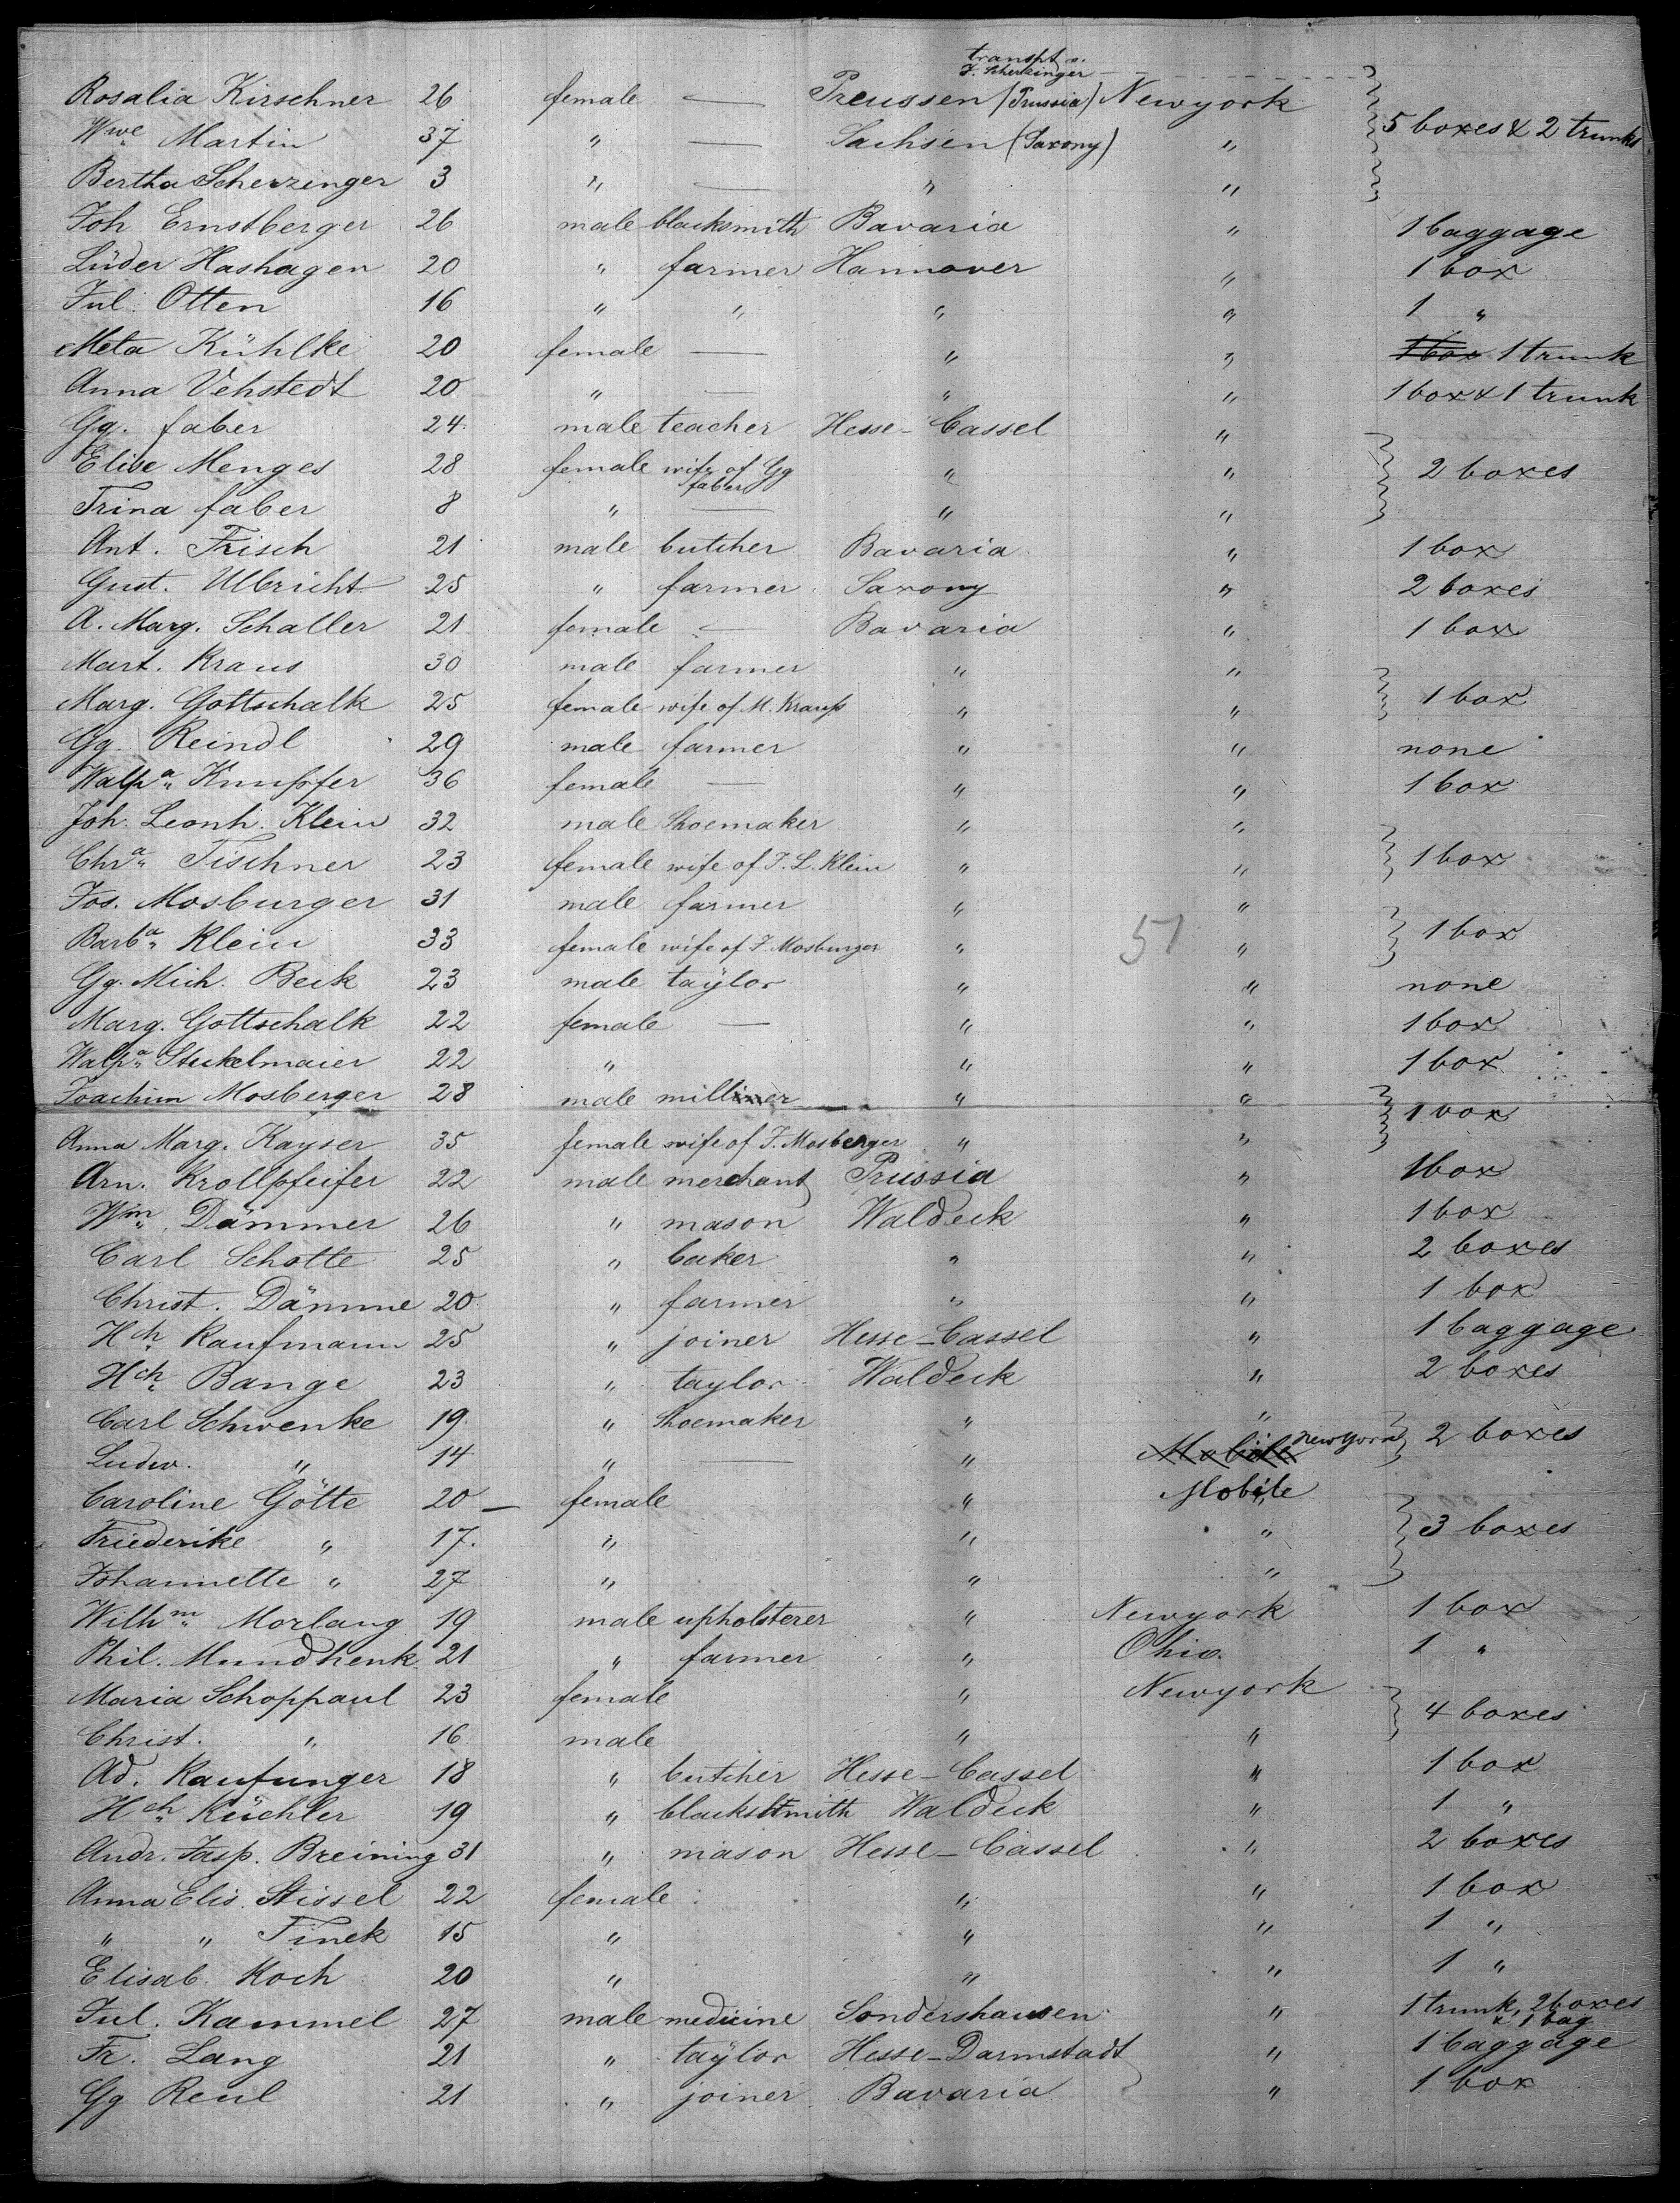 transpt v.
J. Scherzinger
Rosalia Kirschner 26 female — Preussen (Prussia) Newyork
Wwe Martin 37 " — Sachsen (Saxony) " 5 boxes & 2 trunks
Bertha Scherzinger 3 " — " "
Joh Ernstberger 26 male blacksmith Bavaria " 1 baggage
Lüder Hashagen 20 " farmer Hannover " 1 box
Jul. Otten 16 " " " " 1 "
Meta Kühlke 20 female — " " 1 box 1 trunk
Anna Vehstedt 20 " — " " 1 box & 1 trunk
Gg. faber 24 male teacher Hesse-Cassel "
Elise Menges 28 female wife of Gg faber " " 2 boxes
Trina faber 8 " — " "
Ant. Frisch 21 male butcher Bavaria " 1 box
Gust. Ulbricht 25 " farmer Saxony " 2 boxes
A. Marg. Schaller 21 female — Bavaria " 1 box
Mart. Kraus 30 male farmer " "
Marg. Gottschalk 25 female wife of M. Krauss " " 1 box
Gg. Reindl 29 male farmer " " none
Walpa Knupfer 36 female — " " 1 box
Joh. Leonh. Klein 32 male Shoemaker " "
Chra Tischner 23 female wife of J. L. Klein " " 1 box
Jos. Mosburger 31 male farmer " "
Barba Klein 33 female wife of J. Mosburger " 51 " 1 box
Gg. Mich. Beck 23 male taylor " " none
Marg. Gottschalk 22 female — " " 1 box
Walpa Stukelmaier 22 " " " 1 box
Joachim Mosberger 28 male milliner " " 1 box
Anna Marg. Kayser 35 female wife of J. Mosberger " "
Arn. Krollpfeifer 22 male merchant Prussia " 1 box
Wm Dämmer 26 " mason Waldeck " 1 box
Carl Schotte 25 " baker " " 2 boxes
Christ. Dämme 20 " farmer " " 1 box
Hch Kaufmann 25 " joiner Hesse-Cassel " 1 baggage
Hch Bange 23 " taylor Waldeck " 2 boxes
Carl Schwenke 19 " Shoemaker " " 2 boxes
Ludw. " 14 " — " Mobile Newyork
Caroline Götte 20 — female " Mobile
Friederike " 17. " " " 3 boxes
Johannette " 27 " " "
Wilhm Morlang 19 male upholsterer " Newyork 1 box
Phil. Mundhenk 21 " farmer " Ohio. 1 "
Maria Schoppaul 23 female " Newyork 4 boxes
Christ. " 16 male " "
Ad. Kaufunger 18 " butcher Hesse-Cassel " 1 box
Hch Küchler 19 " blacksmith Waldeck " 1 "
Andr. Jasp. Breining 31 " mason Hesse-Cassel " 2 boxes
Anna Elis. Stissel 22 female " " 1 box
" " Finek 15 " " " 1 "
Elisab. Koch 20 " " " 1 "
Jul. Kammel 27 male medicine Sondershausen " 1 trunk, 2 boxes & 1 bag
Fr. Lang 21 " taylor Hesse-Darmstadt " 1 baggage
Gg Reul 21 " joiner Bavaria " 1 box